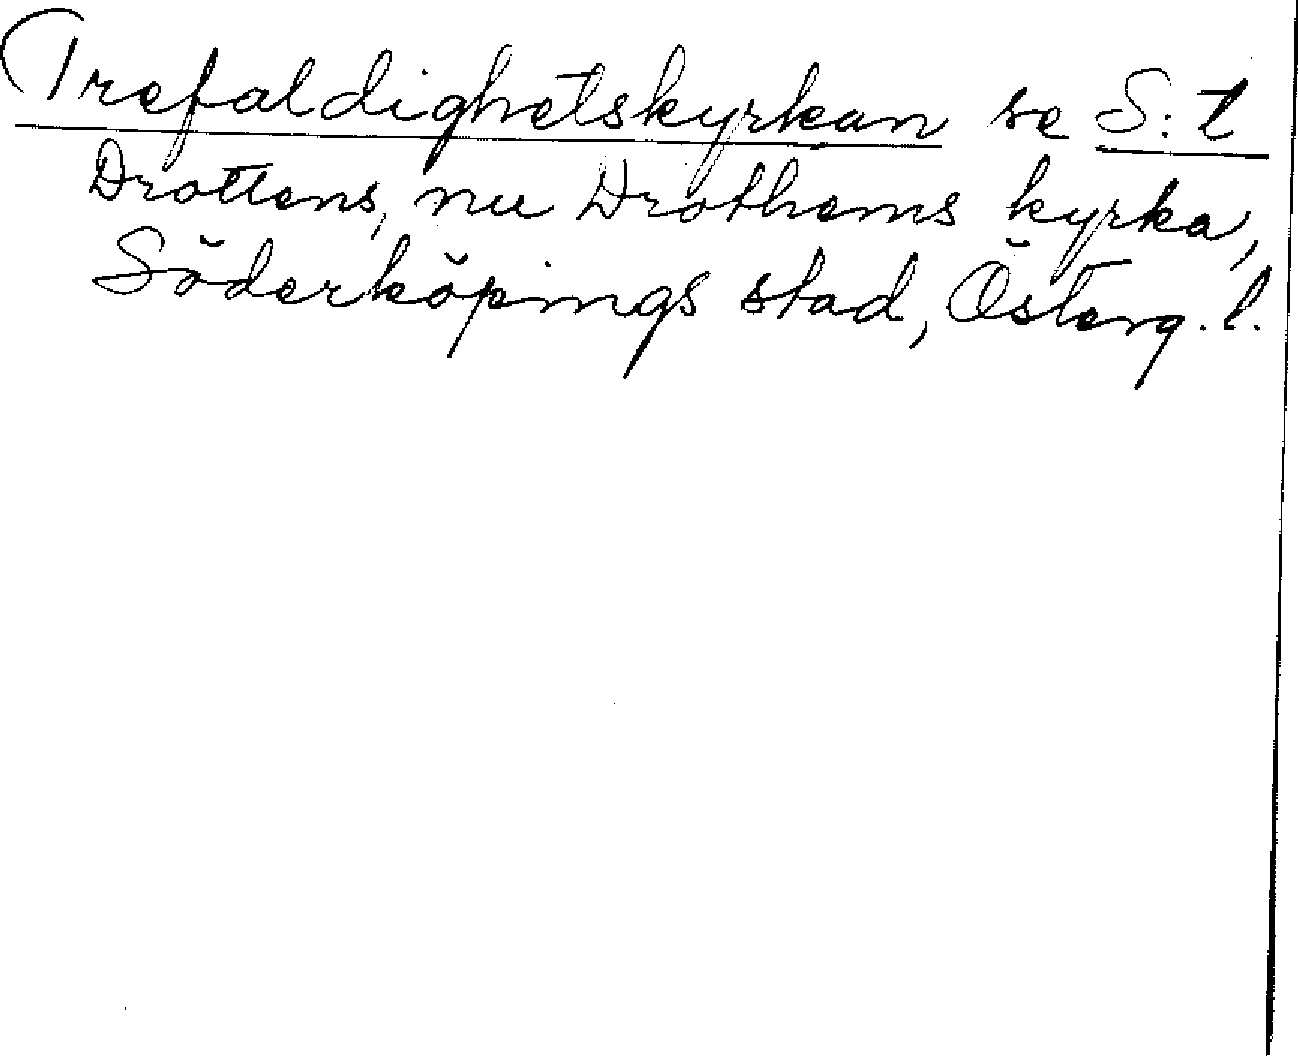 Trefaldighetskyrkan se S:t
Drottens, nu Drothems kyrka,
Söderköpings stad, Österg.l.